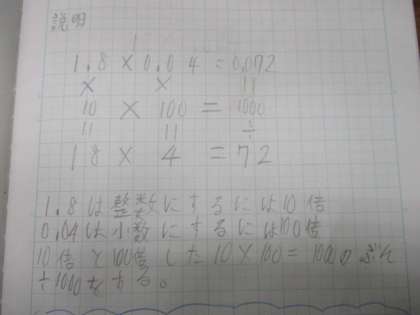 説明
1.8×0.04=0.072
× × 11
10 × 100 = 1000
11 11 ÷
18 × 4 =72
1.8は整数にするには10倍
0.04は小数にするには100倍
10倍と100倍した10×100=1000の ぶん
÷1000をする。